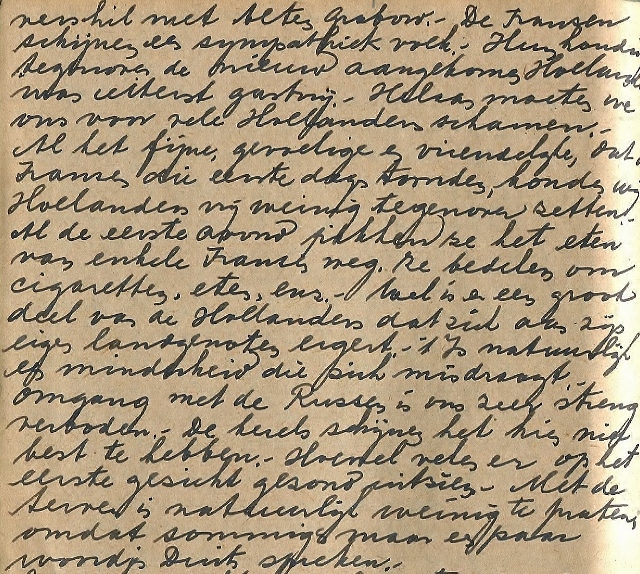 verschil met Altengrabow.- De Fransen
schijnen een sympathiek volk.- Hun houding
tegenover de nieuw aangekomen Hollanders
was uiterst gastvrij.- Helaas moeten we
ons voor vele Hollanders schamen.-
Al het fijne, gevoelige en vriendelijke, dat de
Fransen die eerste dagen toonden, konden wij
Hollanders wij weinig tegenover zetten!.
Al de eerste avond pikken ze het eten
van enkele Fransen weg. Ze bedelen om
cigaretten, eten, enz.- Wel is er een groot
deel van de Hollanders dat zich aan zijn
eigen landgenoten ergert.- 't Is natuurlijk
een minderheid die zich misdraagt.-
Omgang met de Russen is ons zeer streng
verboden.- De kerels schijnen het hier niet
best te hebben.- Hoewel velen er op het
eerste gezicht gezond uitzien.- Met de
Serven is natuurlijk weinig te praten,
omdat sommigen maar een paar
woordjes Duits spreken.-